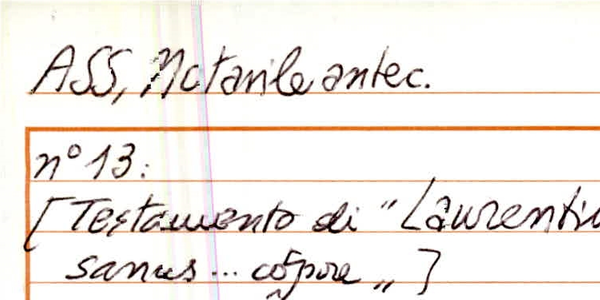 ASS, Notarile antec.
n° 13:
[Testamento di "Laurentiu
sanus ... corpore „ ]